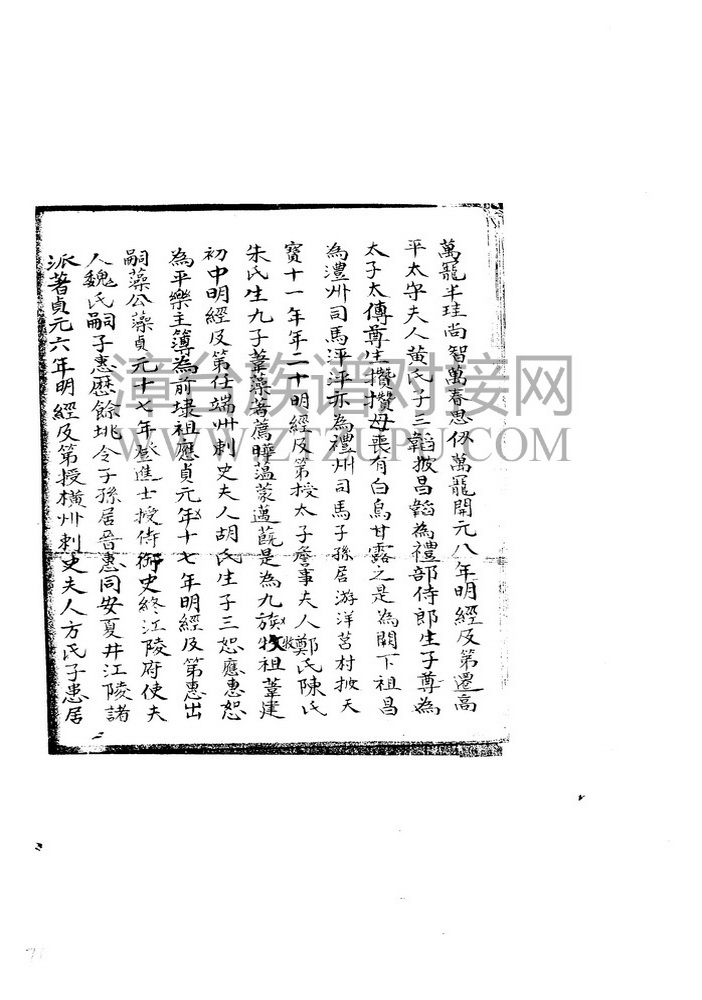 萬寵半珪尚智萬春思伱萬寵開元八年明經及第遷高
平太守夫人黃氏子三韜披昌韜為禮部侍郎生子尊為
太子太傅尊生攢攢母喪有白烏甘露之是為闕下祖昌
為澧州司馬泙泙亦為禮州司馬子孫居游洋莒村披天
寶十一年年二十明經及第授太子詹事夫人鄭氏陳氏
朱氏生九子葦藻著薦曄蘊蒙邁蔇是為九族牧祖葦建
收
初中明經及第任端州刺史夫人胡氏生子三恕應惠恕
為平樂主簿為前埭祖應貞元年十七年明經及第惠出
嗣藻公藻貞元十七年登進士授侍御史終江陵府使夫
人魏氏嗣子惠歷餘姚令子孫居晉惠同安夏井江陵諸
派著貞元六年明經及第授橫州刺史夫人方氏子患居
漳台族谱对接网
WWW.ZTZUPU.COM